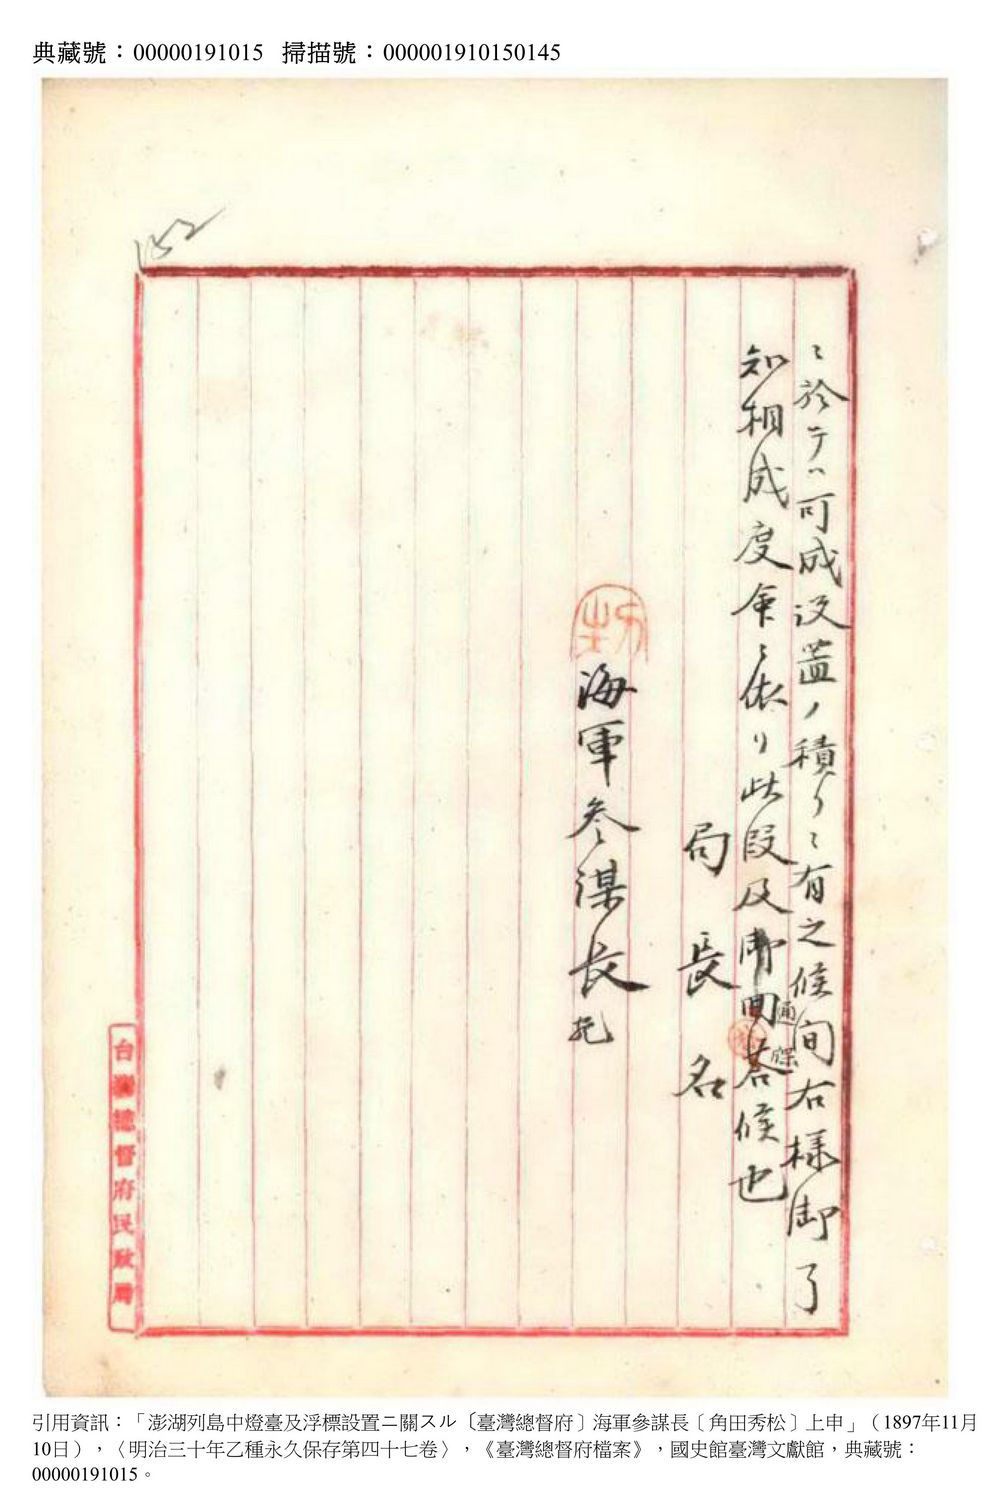 典藏號：00000191015 掃描號：000001910150145
152
ニ於テハ可成設置ノ積リニ有之候間右様御了
知相成度命ニ依リ此段及御回答候也
通牒
局長名
海軍参謀長宛
台灣總督府民政局
引用資訊：「澎湖列島中燈臺及浮標設置ニ關スル〔臺灣總督府〕海軍參謀長〔角田秀松〕上申」（1897年11月
10日），〈明治三十年乙種永久保存第四十七卷〉，《臺灣總督府檔案》，國史館臺灣文獻館，典藏號：
00000191015。